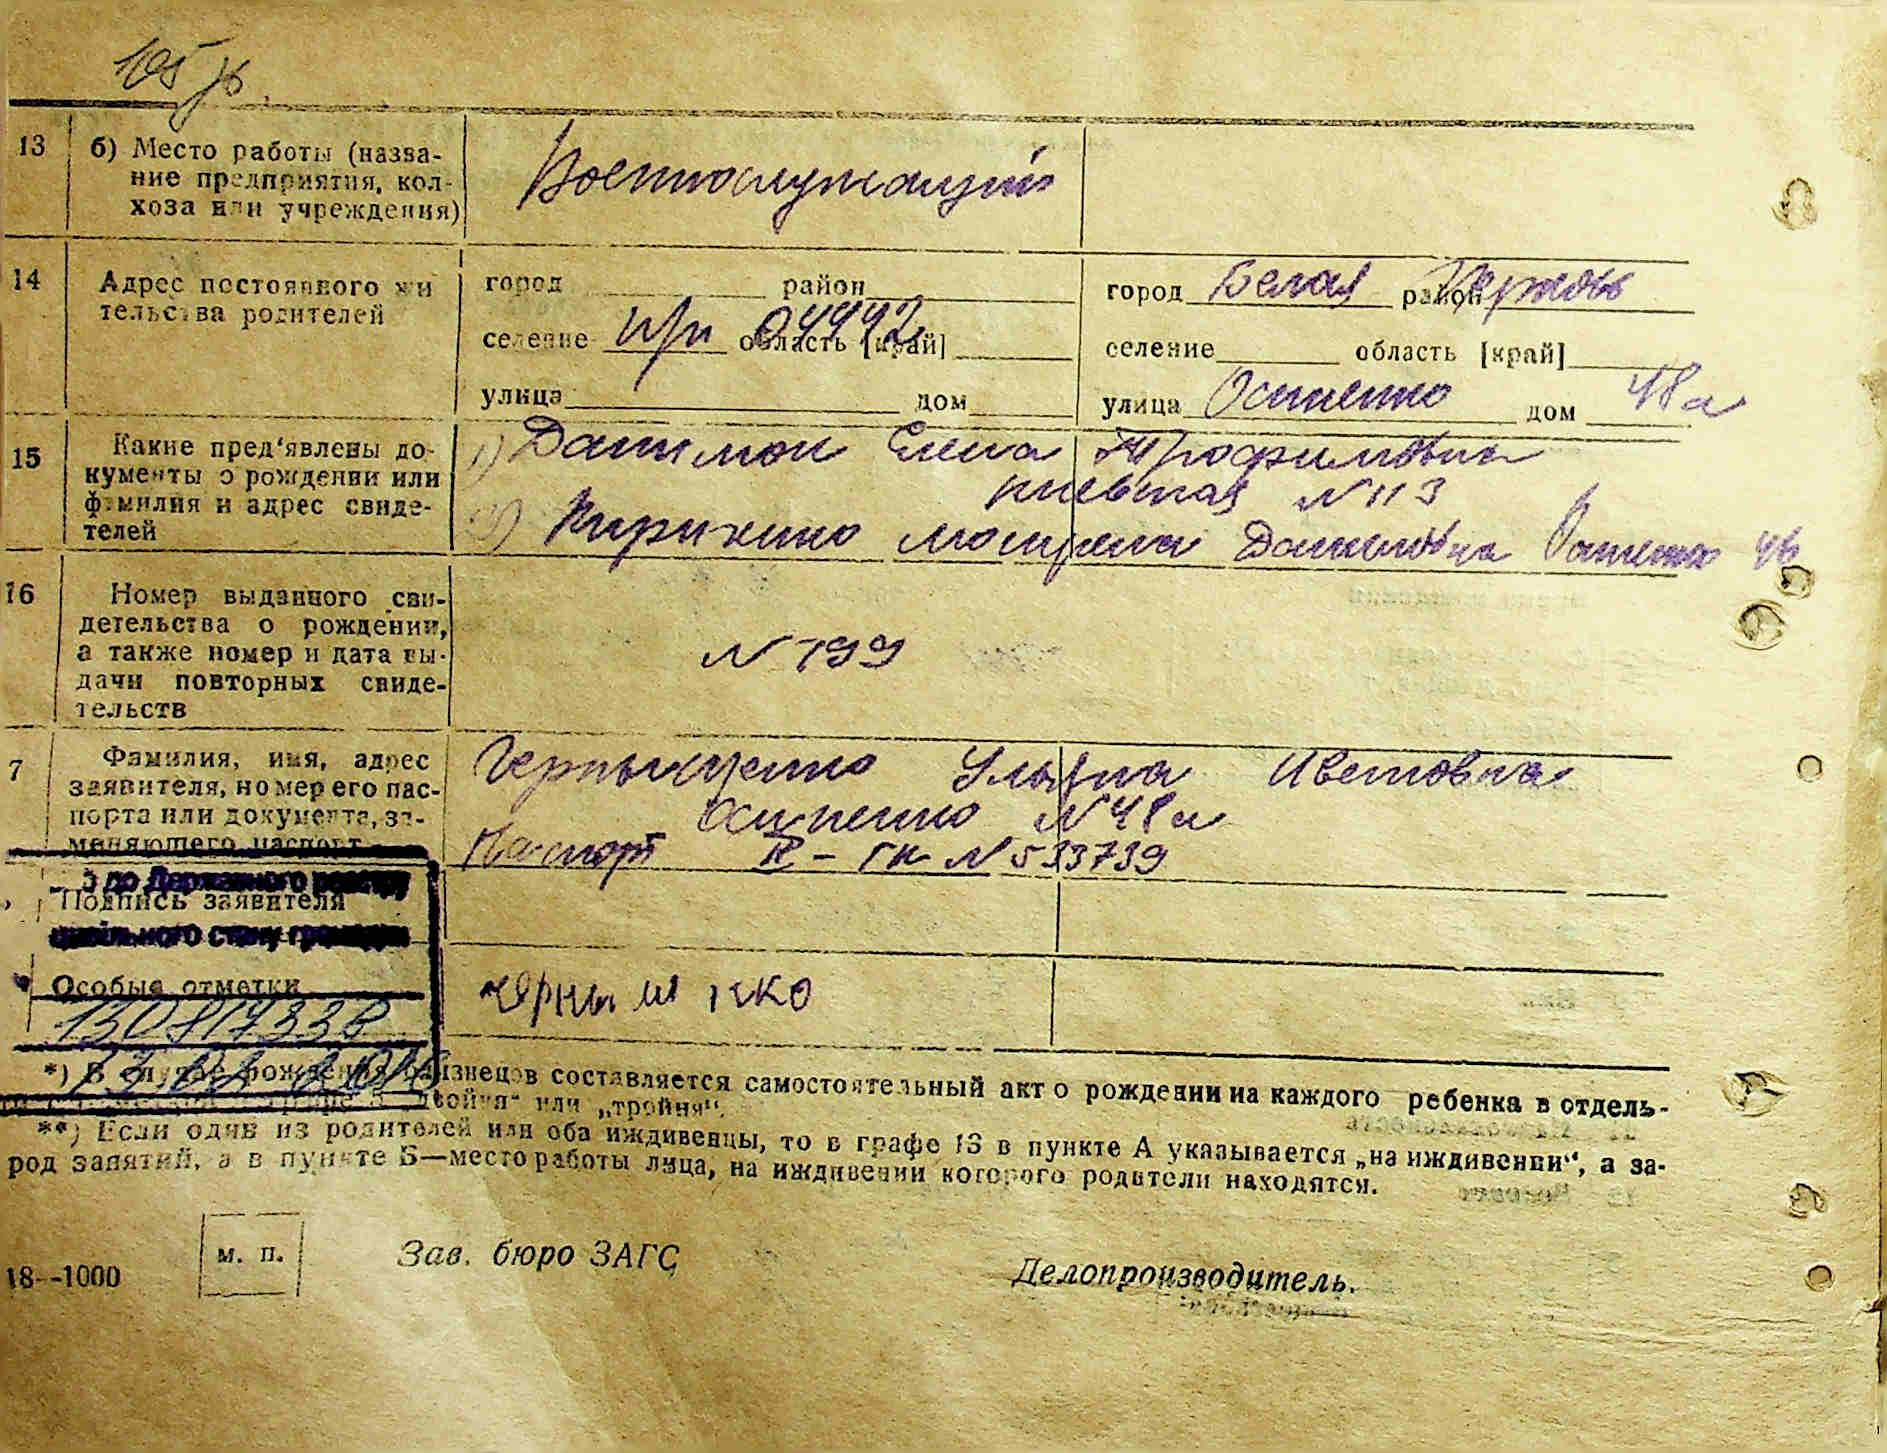 13 б) Место работы (назва-
ние предприятия, кол-
хоза или учреждения)
Военнослужащий
14 Адрес постоянного жи
тельства родителей
город район
селение п/п 04442 область [край]
улица дом
город Белая район Церковь
селение область [край]
улица Осипенко дом 48а
15 Какие пред'явлены до-
кументы о рождении или
фамилия и адрес свиде-
телей
1) Елена Трофимовна
киевская N 113
2) Кириченко Даниловна 46
16 Номер выданного сви-
детельства о рождении,
а также номер и дата вы-
дачи повторных свиде-
тельств
N 199
7 Фамилия, имя, адрес
заявителя, номер его пас-
порта или документа, за-
меняющего паспорт
Чернышенко Ульяна
Осипенко N 48а
Паспорт N 533739
до Державного реєстру
Подпись заявителя
цивільного стану громадян
Особые отметки
130817338
*) В случае рождения близнецов составляется самостоятельный акт о рождении на каждого ребенка в отдель-
"двойня" или „тройня".
**) Если один из родителей или оба иждивенцы, то в графе 13 в пункте А указывается „на иждивении", а за-
род занятий, а в пункте Б—место работы лица, на иждивении которого родители находятся.
м. п.
Зав. бюро ЗАГС
Делопроизводитель.
18--1000